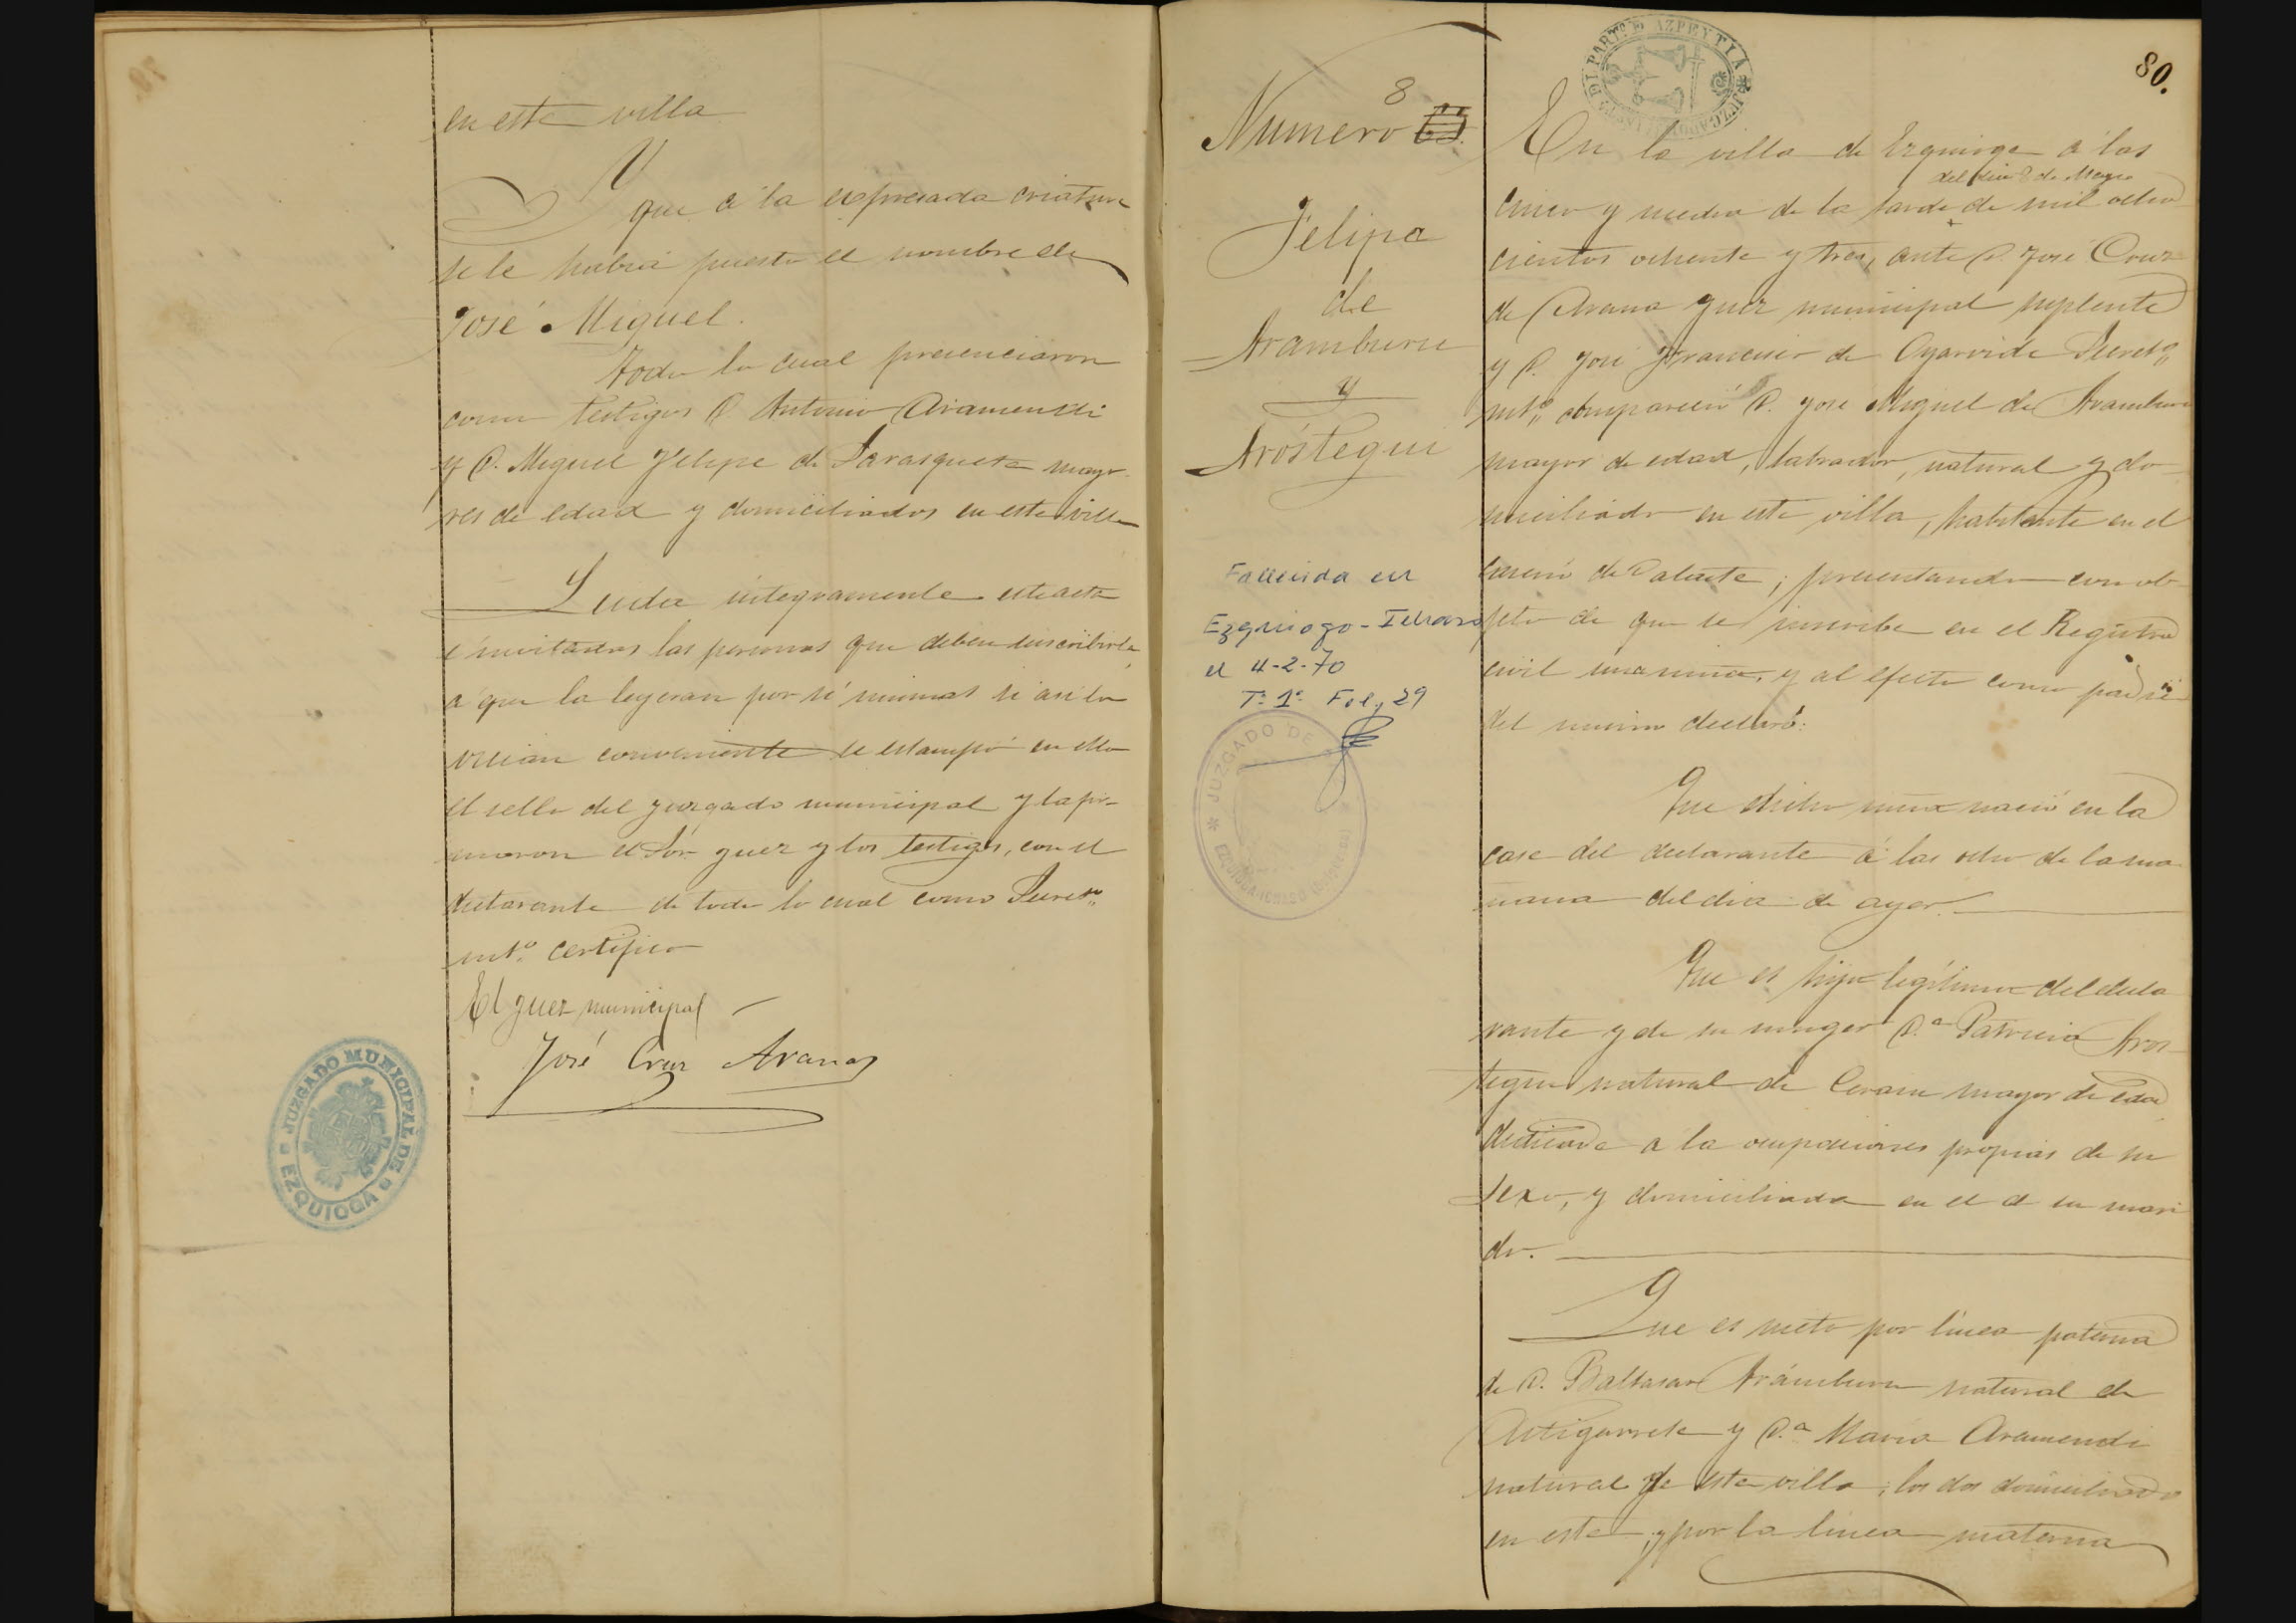 en esta villa
Y
que a la expresada criatura
se le habia puesto el nombre de
José Miguel.
Todo lo cual presenciaron
como testigos D. Antonio Aramendi
y D. Miguel Felipe de Sarasqueta mayo-
res de edad y domiciliados en esta villa
Leida integramente esta acta
é invitadas las personas que deben suscribirla
á que la leyeran por si mismas si asi lo
creian conveniente se estampó en ella
el sello del juzgado municipal y la fir-
maron el Sor juez y los testigos, con el
declarante de todo lo cual como Secreto
int.º certifico
El juez municipal
José Cruz Arana
JUZGADO MUNICIPAL DE
EZQUIOGA
80.
PARTº DE AZPEYTIA
Numero 8
Felipa
de
Aramburu
y
Aróstegui
Fallecida en
Ezquioga-Ichaso
el 4-2-70
Tº 1º Fol, 29
JUZGADO DE
En la villa de Ezquioga á las
del dia 2 de Mayo
cinco y media de la tarde de mil ocho
cientos ochenta y tres, ante D. José Cruz
de Arana juez municipal suplente
y D. José Francisco de Oyarvide Secretº
intº compareció D. José Miguel de Aramburu
mayor de edad, labrador, natural y do-
miciliado en esta villa, habitante en el
caserio de ; presentando con ob-
jeto de que se inscriba en el Registro
civil una niña, y al efecto como padre
del mismo declaró:
Que dicha niña nació en la
casa del declarante á las ocho de la ma
ñana del dia de ayer.
Que es hija legitima del decla
rante y de su muger D.ª Patricia Aros-
tegui natural de Cerain mayor de edad
dedicada a la ocupaciones propias de su
sexo, y domiciliada en el d su mari
do.
Que es nieta por linea paterna
de D. Baltasar Arámburu natural de
Astigarreta y D.ª Maria Aramendi
natural de esta villa, los dos domiciliados
en esta, y por la linea materna